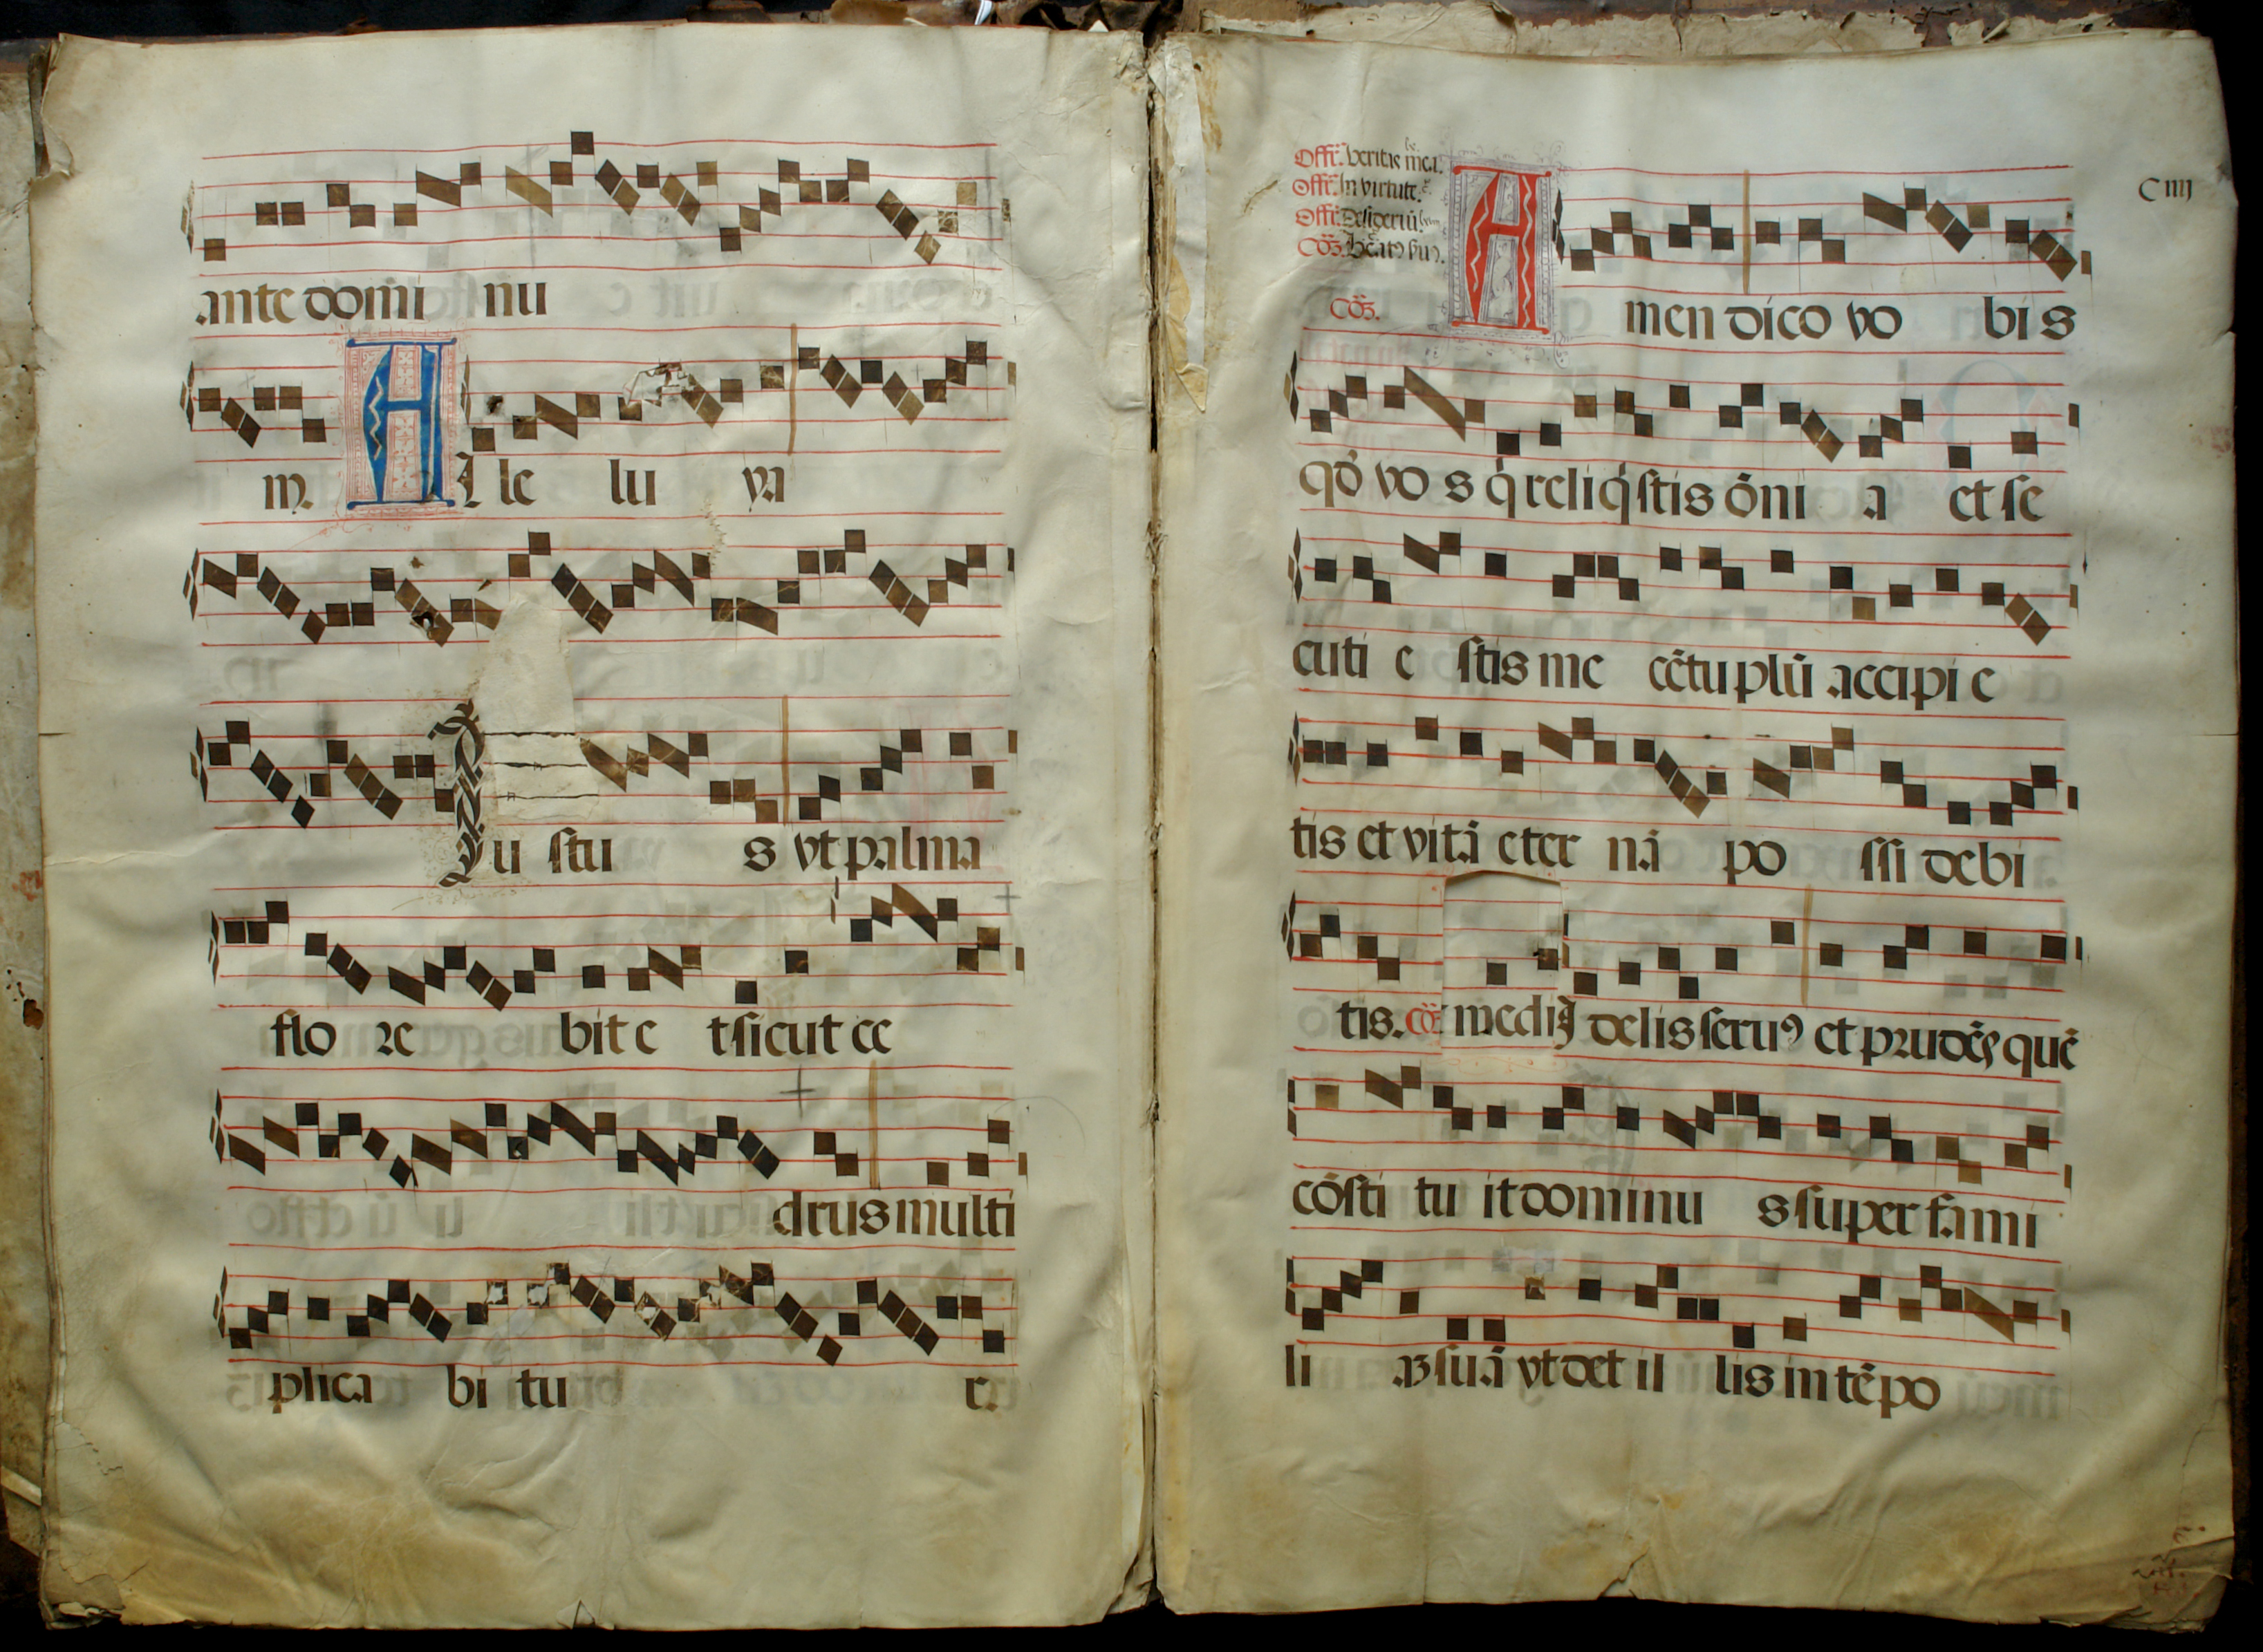 ante domi nu
m. A Alle lu ya
Iu stu s vt palma
flo re bit e t sicut ce
drus multi
plica bi tu r.
Offr̄. veritas mea.
Offr̄. In virtute.
Offr̄. Desideriū
Cōz. beatꝰ ſuꝰ.
C iiij
Cōz. A men dico vo bi s
qđ vo s q̇ reliq̇ſtis ōni a et ſe
cuti e ſtis me cētuplū accipi e
tis et vitā eter nā po ſſi debi
tis. cō medi delis ſeruꝰ et prudēs quē
cōſti tu it dominu s ſuper fami
li aꝫ ſuā vt det il lis in tēpo